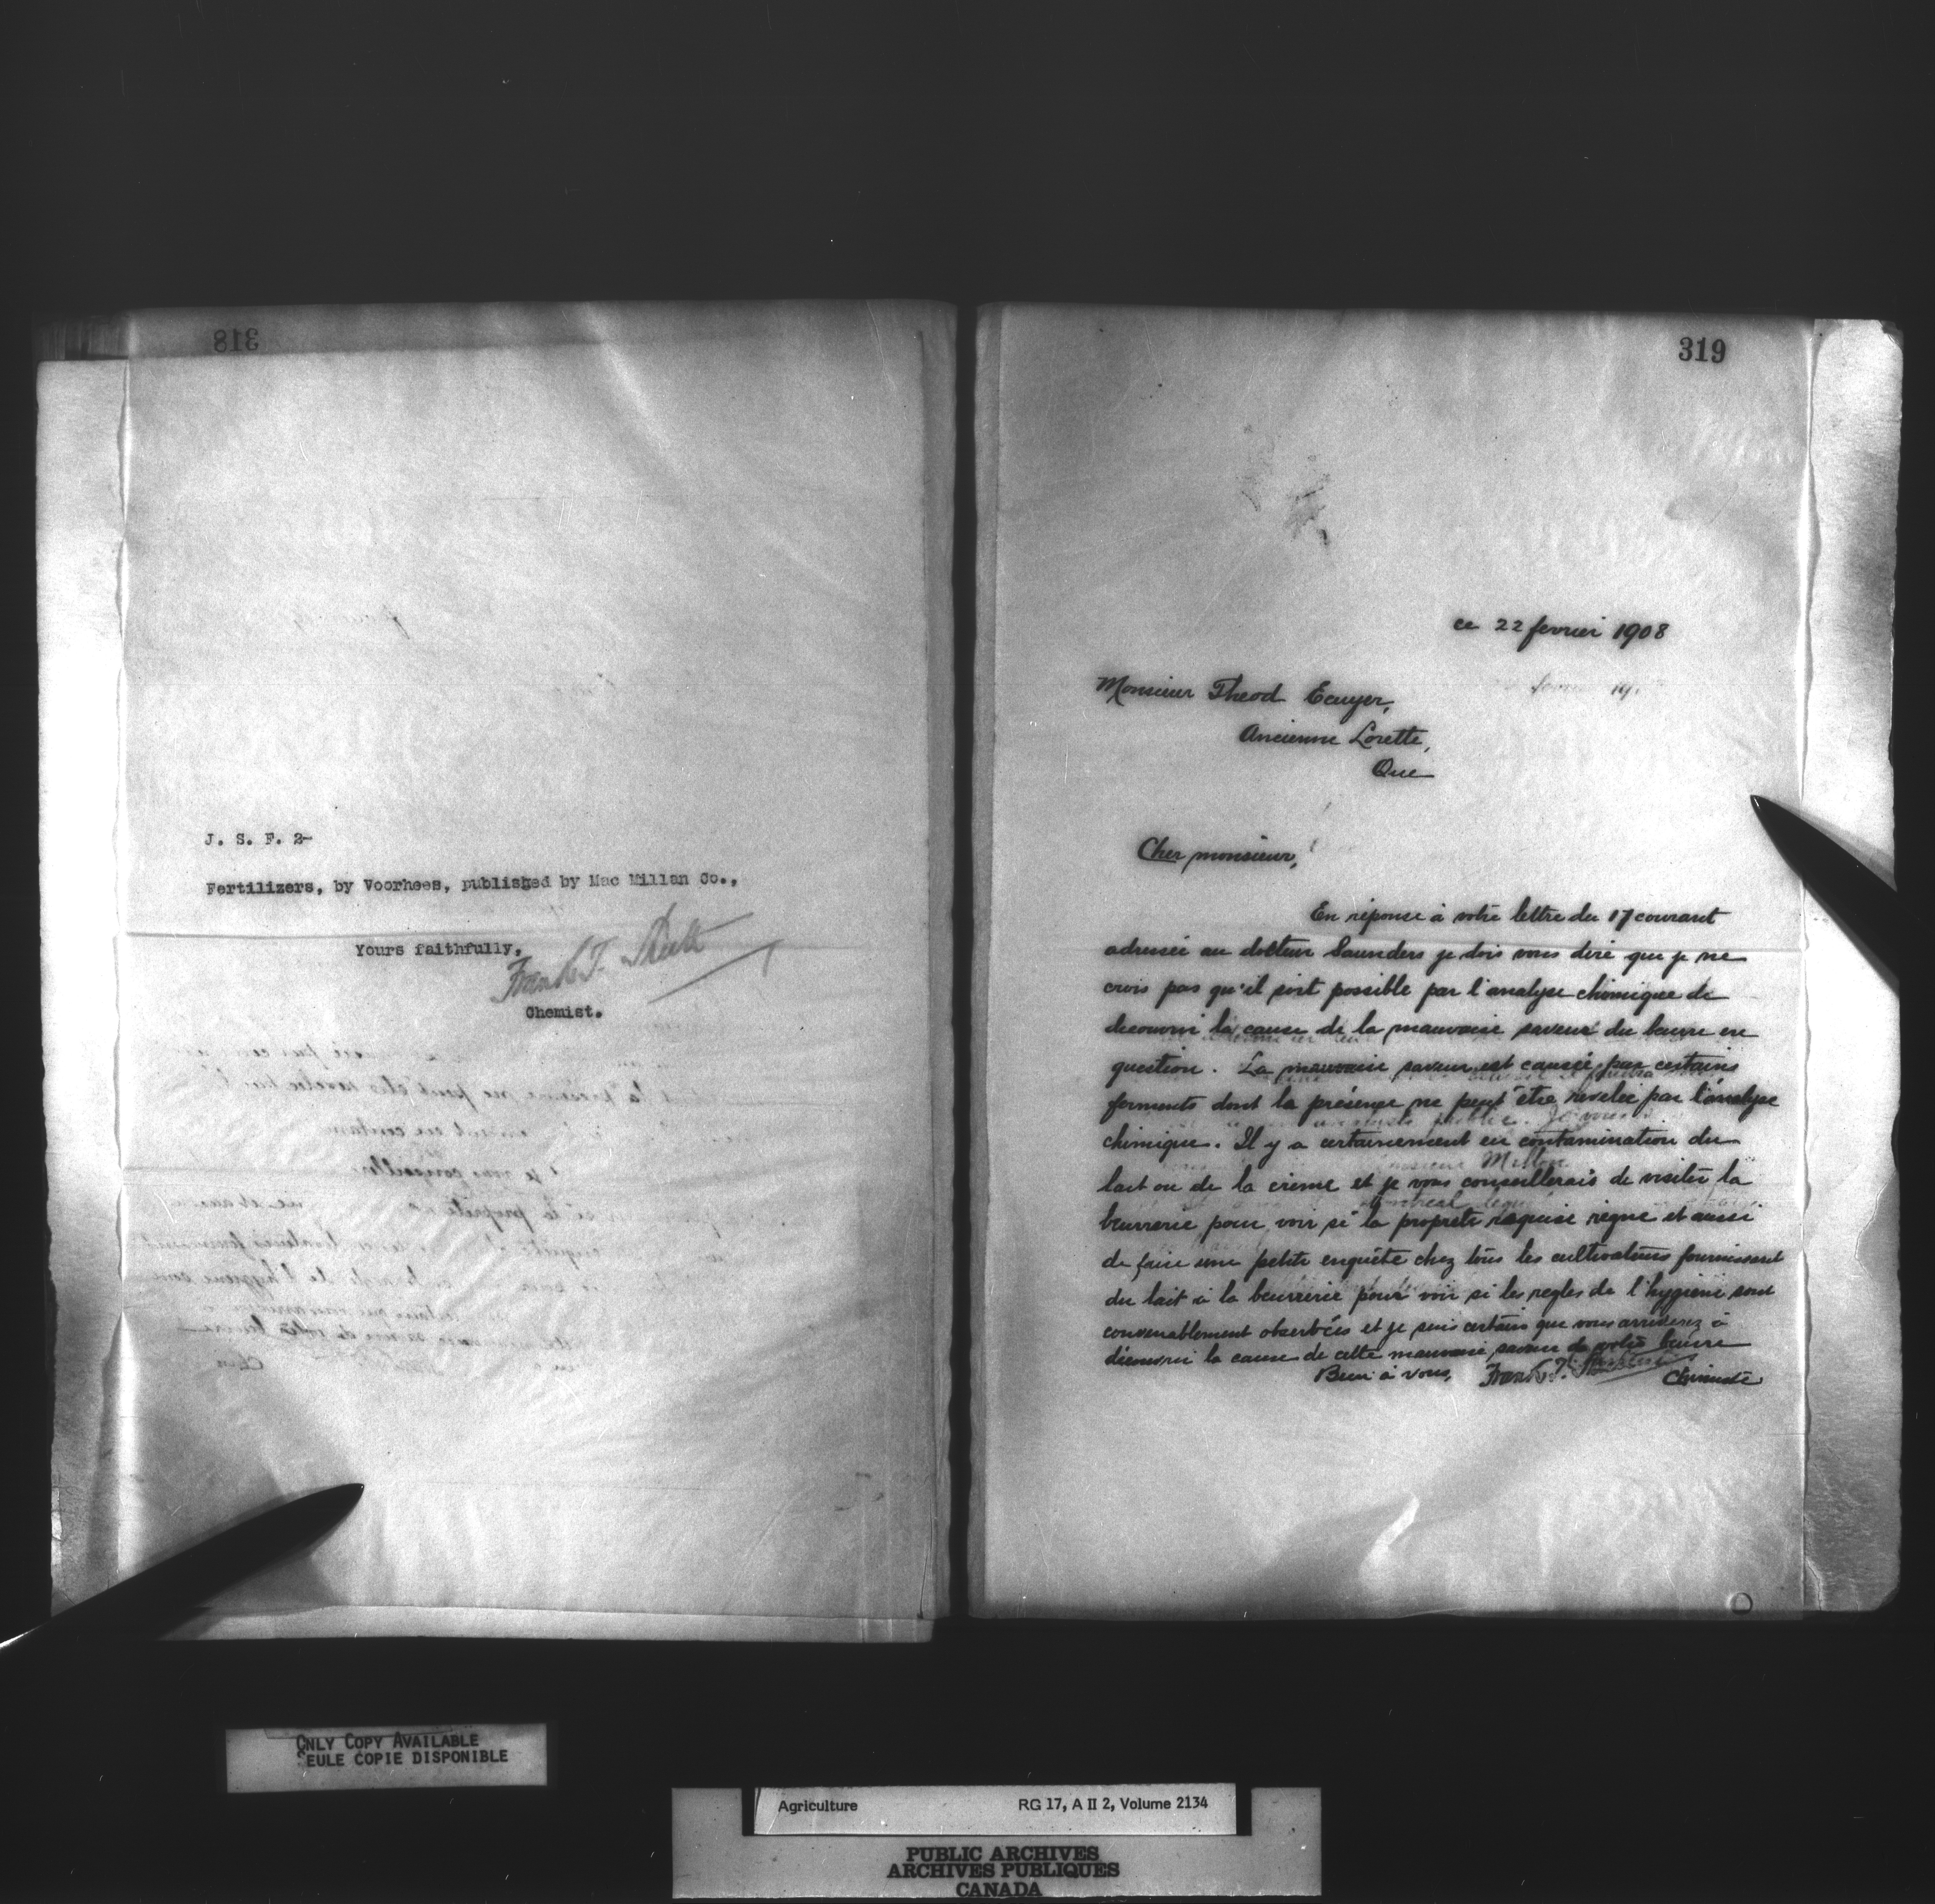 318
J. S. F. 2-
Fertilizers, by Voorhees, published by Mac Millan Co.,
Yours faithfully,
Frank T. Shutt
Chemist.
319
ce 22 fevrier 1908
Monsieur Theod Ecuyer,
Ancienne Lorette,
Que
Cher monsieur,
En réponse à votre lettre du 17 courant
adressée au docteur Saunders je dois vous dire que je ne
crois pas qu'il soit possible par l'analyse chimique de
decouvrir la cause de la mauvaise saveur du beurre en
question. La mauvaise saveur est causée par certains
ferments dont la présence ne peut être revelée par l'analyse
chimique. Il y a certainement eu contamination du
lait ou de la crème et je vous conseillerais de visiter la
beurrerie pour voir si la propreté requise règne et aussi
de faire une petite enquête chez tous les cultivateurs fournissant
du lait à la beurrerie pour voir si les regles de l'hygiene sont
convenablement observées et je suis certain que vous arriverez à
découvrir la cause de cette mauvaise saveur de votre beurre
Bien à vous, Frank T. Shutt
Chimiste
ONLY COPY AVAILABLE
SEULE COPIE DISPONIBLE
Agriculture RG 17, A II 2, Volume 2134
PUBLIC ARCHIVES
ARCHIVES PUBLIQUES
CANADA